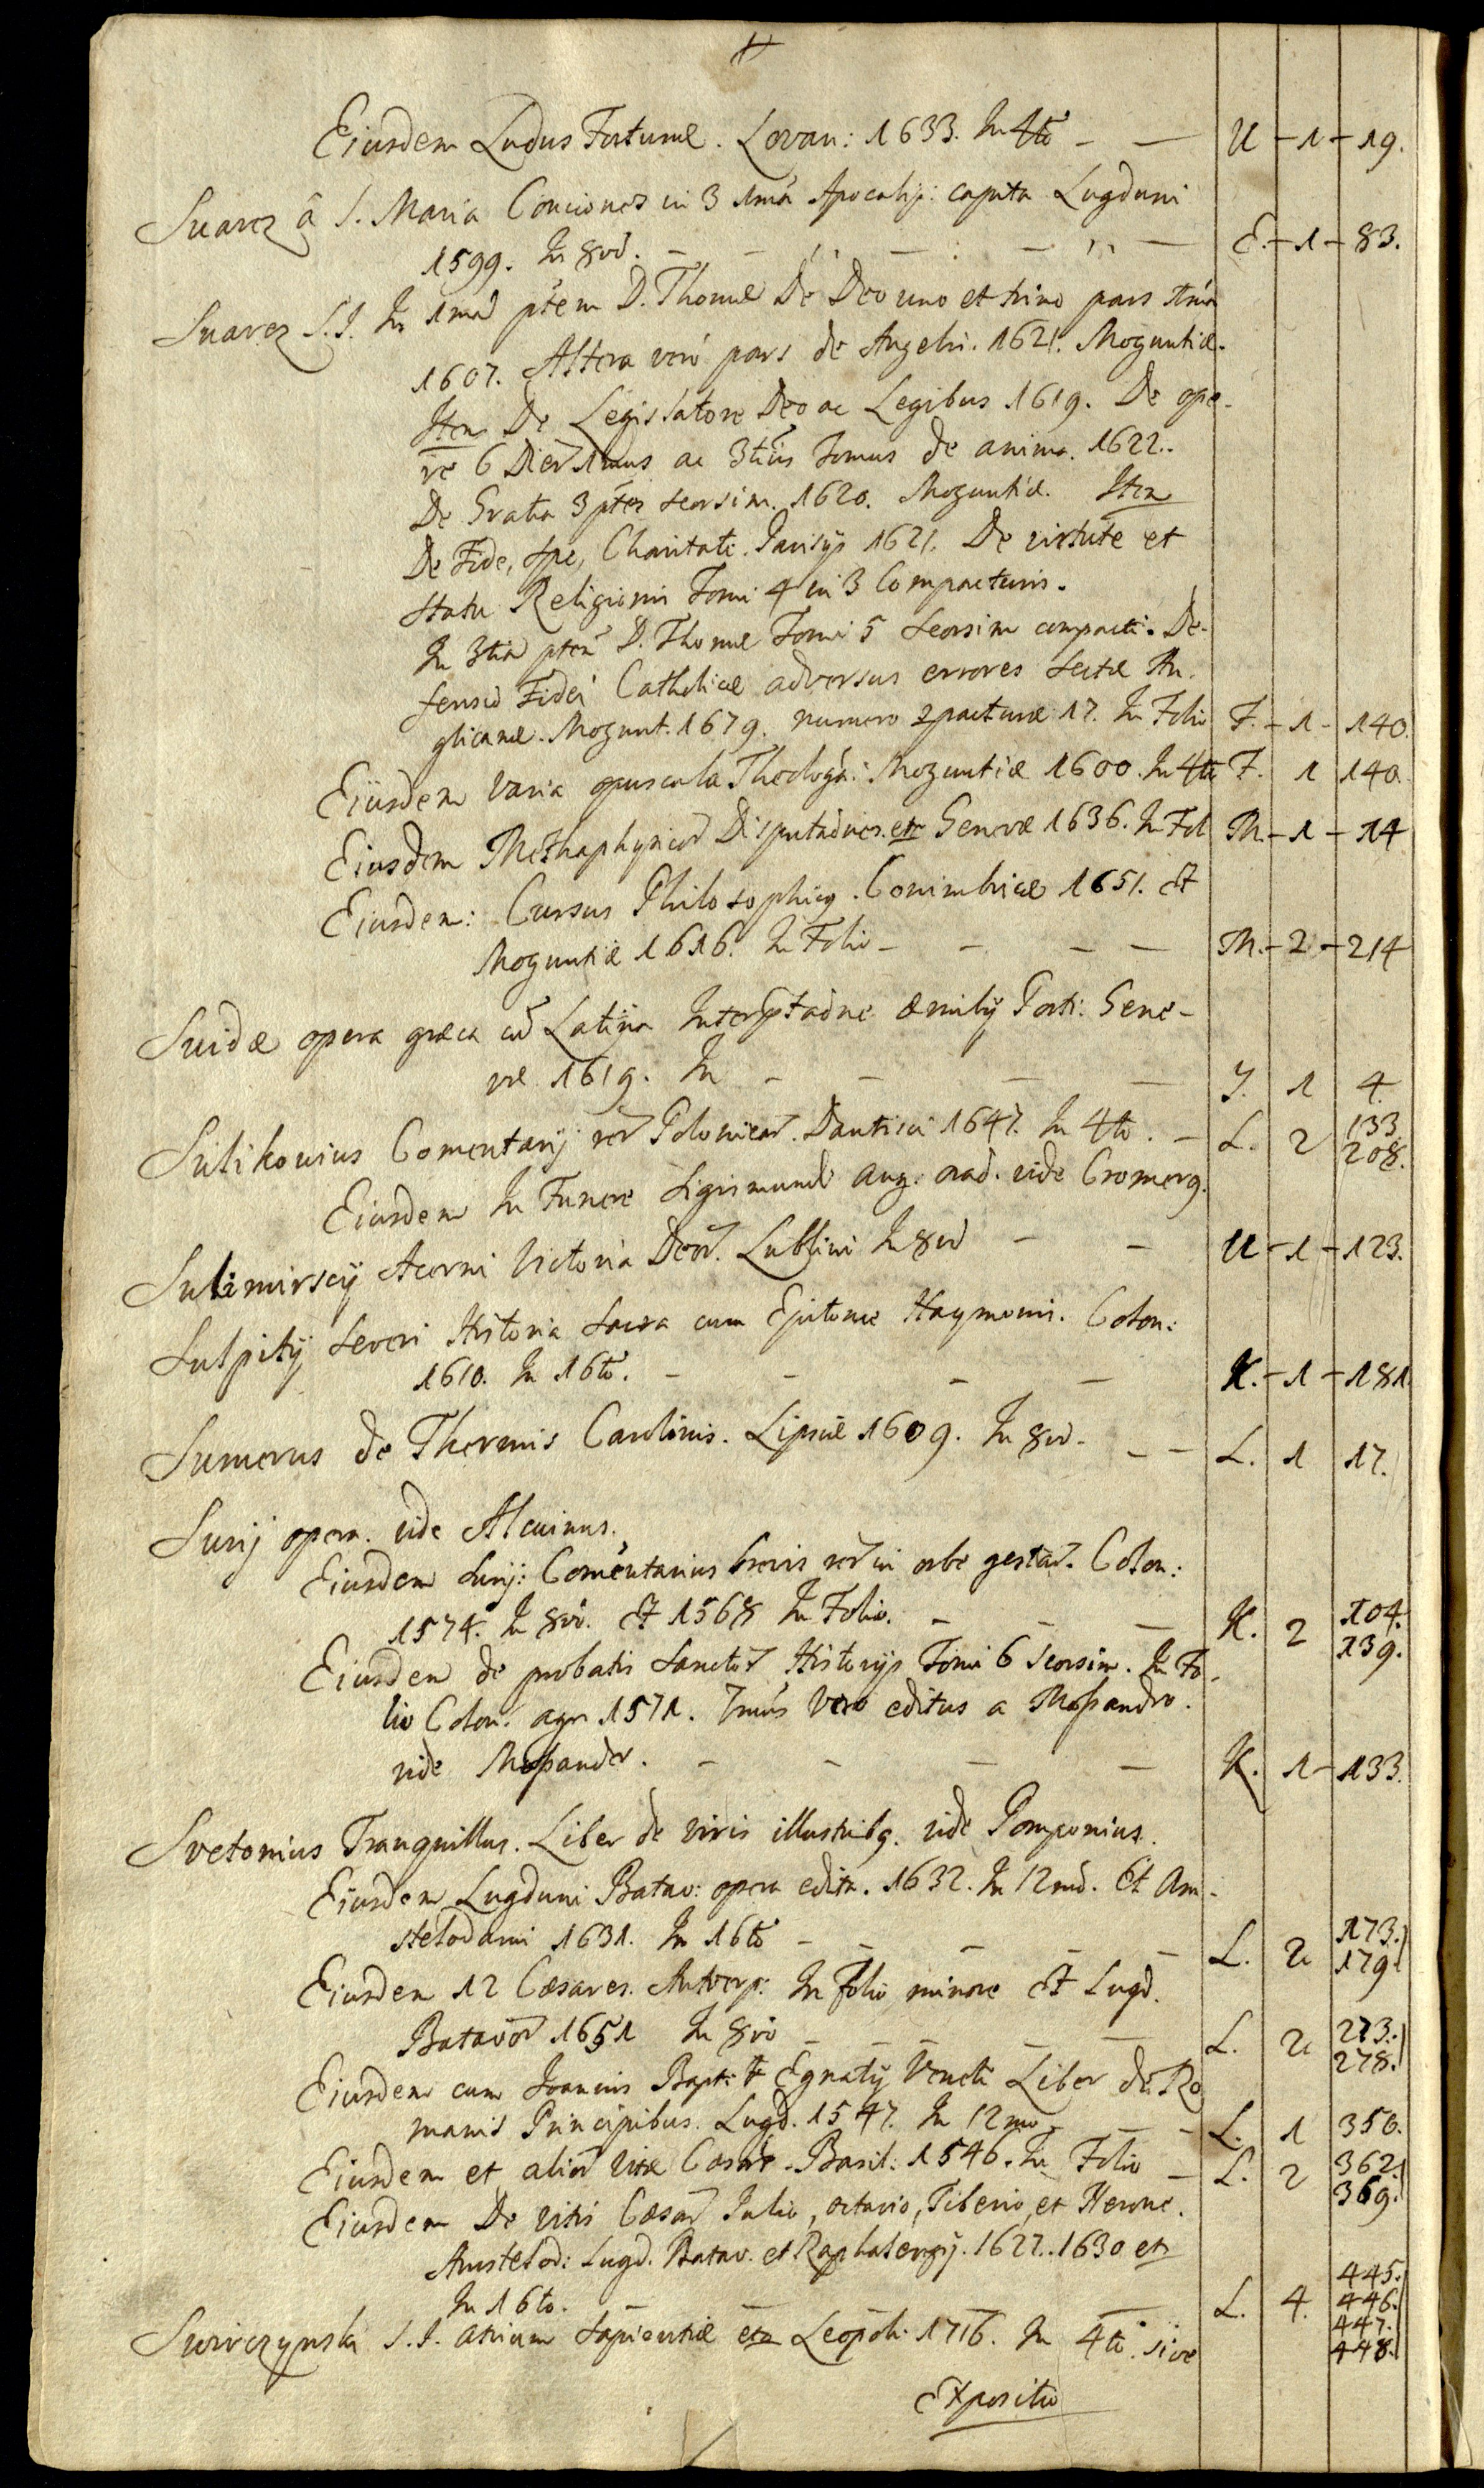 Eiusdem Ludus Fortunæ. Lovan: 1633. In 4to — — U - 1 - 19.
Suarez â S. Maria Conciones in 3 1ma Apocalip: caputa Lugduni
1599. In 8vo. — — — — — E. - 1 - 83.
Suarez S.J. In 1mã ptem D. Thomæ De Deo uno et trino pars 1ma
1607. Altera verò pars de Angelis. 1621. Moguntiæ.
Item De Legislatore Deo ac Legibus 1619. De ope-
re 6 Dier 1mus ac 3tius tomus de anima. 1622.
De Gratia 3 ptes seorsim. 1620. Moguntiæ. Item
De Fide, Spe, Charitate. Parisijs 1621. De virtute et
statu Religionis Tomi 4 in 3 Compacturis.
In 3tiã ptem D. Thomæ Tomi 5 seorsim compacti. De-
fensio Fidei Catholicæ adversus errores sectæ An-
glicanæ. Mogunt. 1679. numero 2pacturæ 17. In Folio F. - 1 - 140.
Eiusdem Varia opuscula Theologa: Moguntiæ 1600. In 4to F. 1 140.
Eiusdem Methaphysicor Disputaones. etc Genevæ 1636. In Fol M. - 1 - 14
Eiusdem: Cursus Philosophicg. Conimbricæ 1651. Et
Moguntiæ 1616. In Folio — — — — M. - 2 - 214
Suidæ opera græca cũ Latina Interptaõne æmilij Porti: Gene-
væ 1619. In — — — — J. 1 4.
Sulikouius Comentarij rer Polonicar. Dantisci 1647. In 4to. — L. 2 133. 208.
Eiusdem In Funere Sigismundi Aug. orað. vide Cromerg.
Sulimirscij Acerni Victoria Deor. Lublini In 8vo — — U - 1 - 123.
Sulpitij Severi Historia Sacra cum Epitome Haymonis. Colon:
1610. In 16to. — — — — K. - 1 - 181.
Sumerus de Thermis Carolinis. Lipsiæ 1609. In 8vo. — — L. 1 17.
Surij opera. vide Alcuinus.
Eiusdem Surij: Comentarius brevis rer in orbe gestar. Colon:
1574. In 8vo. Et 1568 In Folio. — — — K. 2 104. 139.
Eiusdem de probatis Sanctor Historijs Tomi 6 seorsim. In Fo-
lio Colon: agr. 1571. 7mus Vero editus a Mosandro.
vide Mosander. — — — — K. 1 - 133.
Svetonius Tranquillus. Liber de viris illustribg. vide Pomponius.
Eiusdem Lugduni Batav: opera edita. 1632. In 12mo. Et Am-
stelodami 1631. In 16to — — — — — L. 2 173. 179.
Eiusdem 12 Cæsares. Antverp: In folio minore Et Lugd.
Batavor 1651 In 8vo — — — — L. 2 273. 278.
Eiusdem cum Joannis Bapt: Egnatij Veneti Liber de Ro
manis Principibus. Lugd. 1547. In 12mo — — — L. 1 350.
Eiusdem et alior vitæ Cæsar. Basil: 1546. In Folio — L. 2 362. 369.
Eiusdem De vitis Cæsar Julio, octavio, Tiberio, et Nerone.
Amstelod: Lugd. Batav. et Raphalengij. 1622. 1630 etc
In 16to. — — — — L. 4. 445. 446. 447. 448.
Swirczynski S.J. atrium Sapientiæ etc Leopoli. 1716. In 4to. sive
Expositio